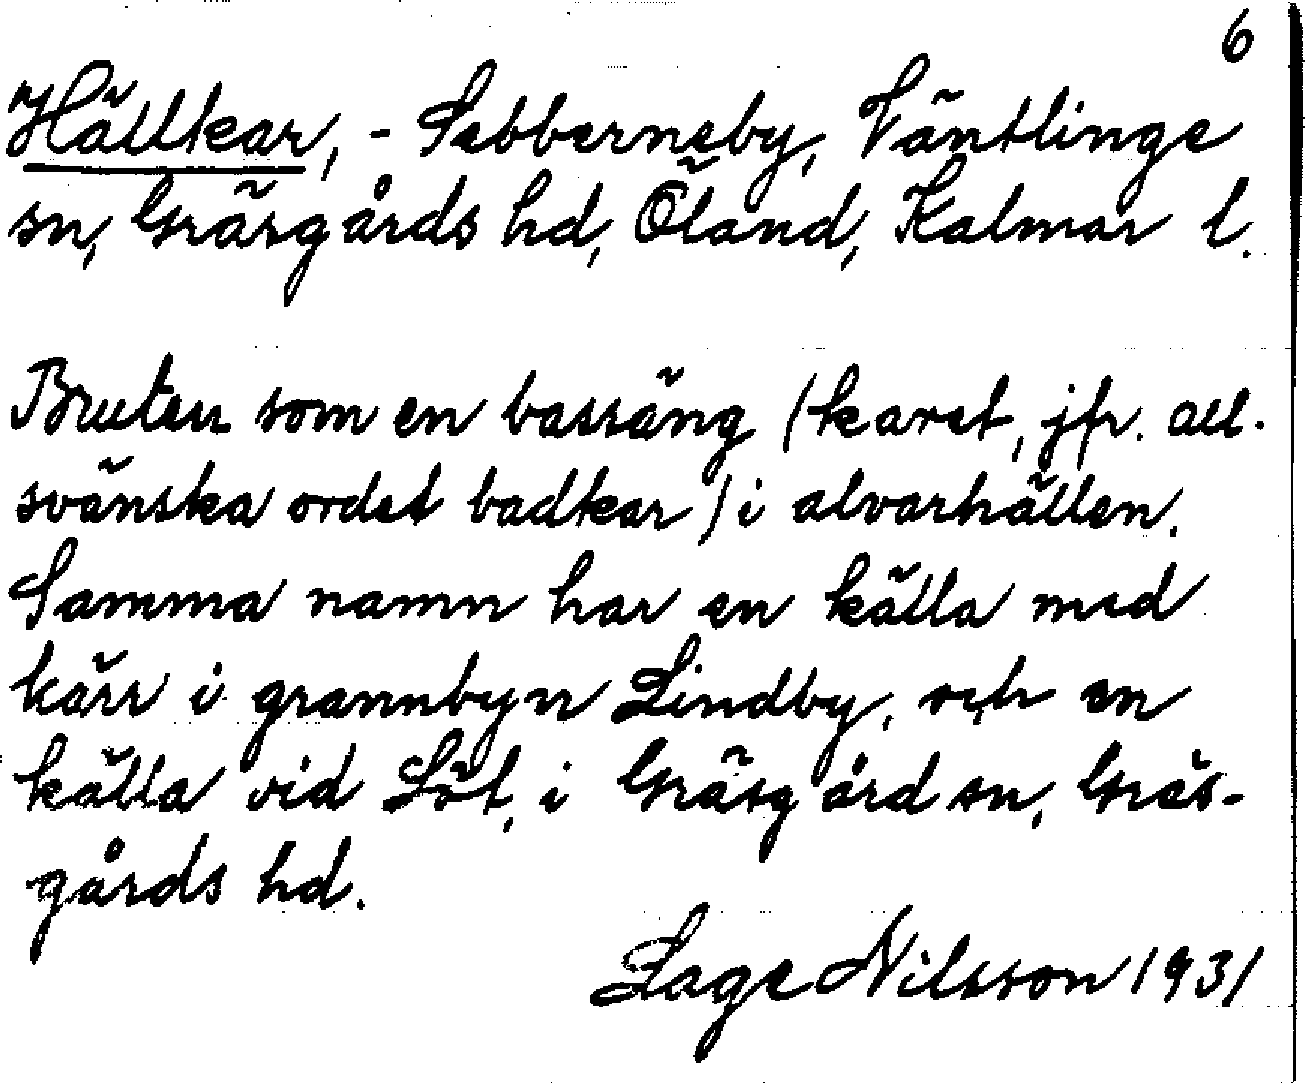 6
Hällkar, - Sebberneby, Väntlinge
sn, Gräsgårds hd, Öland, Kalmar l.
Bruten som en bassäng (karet, jfr. all.
svänska ordet badkar) i alvarhällen.
Samma namn har en källa med
kärr i grannbyn Lindby, och en
källa vid Löt, i Gräsgård sn, Gräs-
gårds hd.
Lage Nilsson 1931